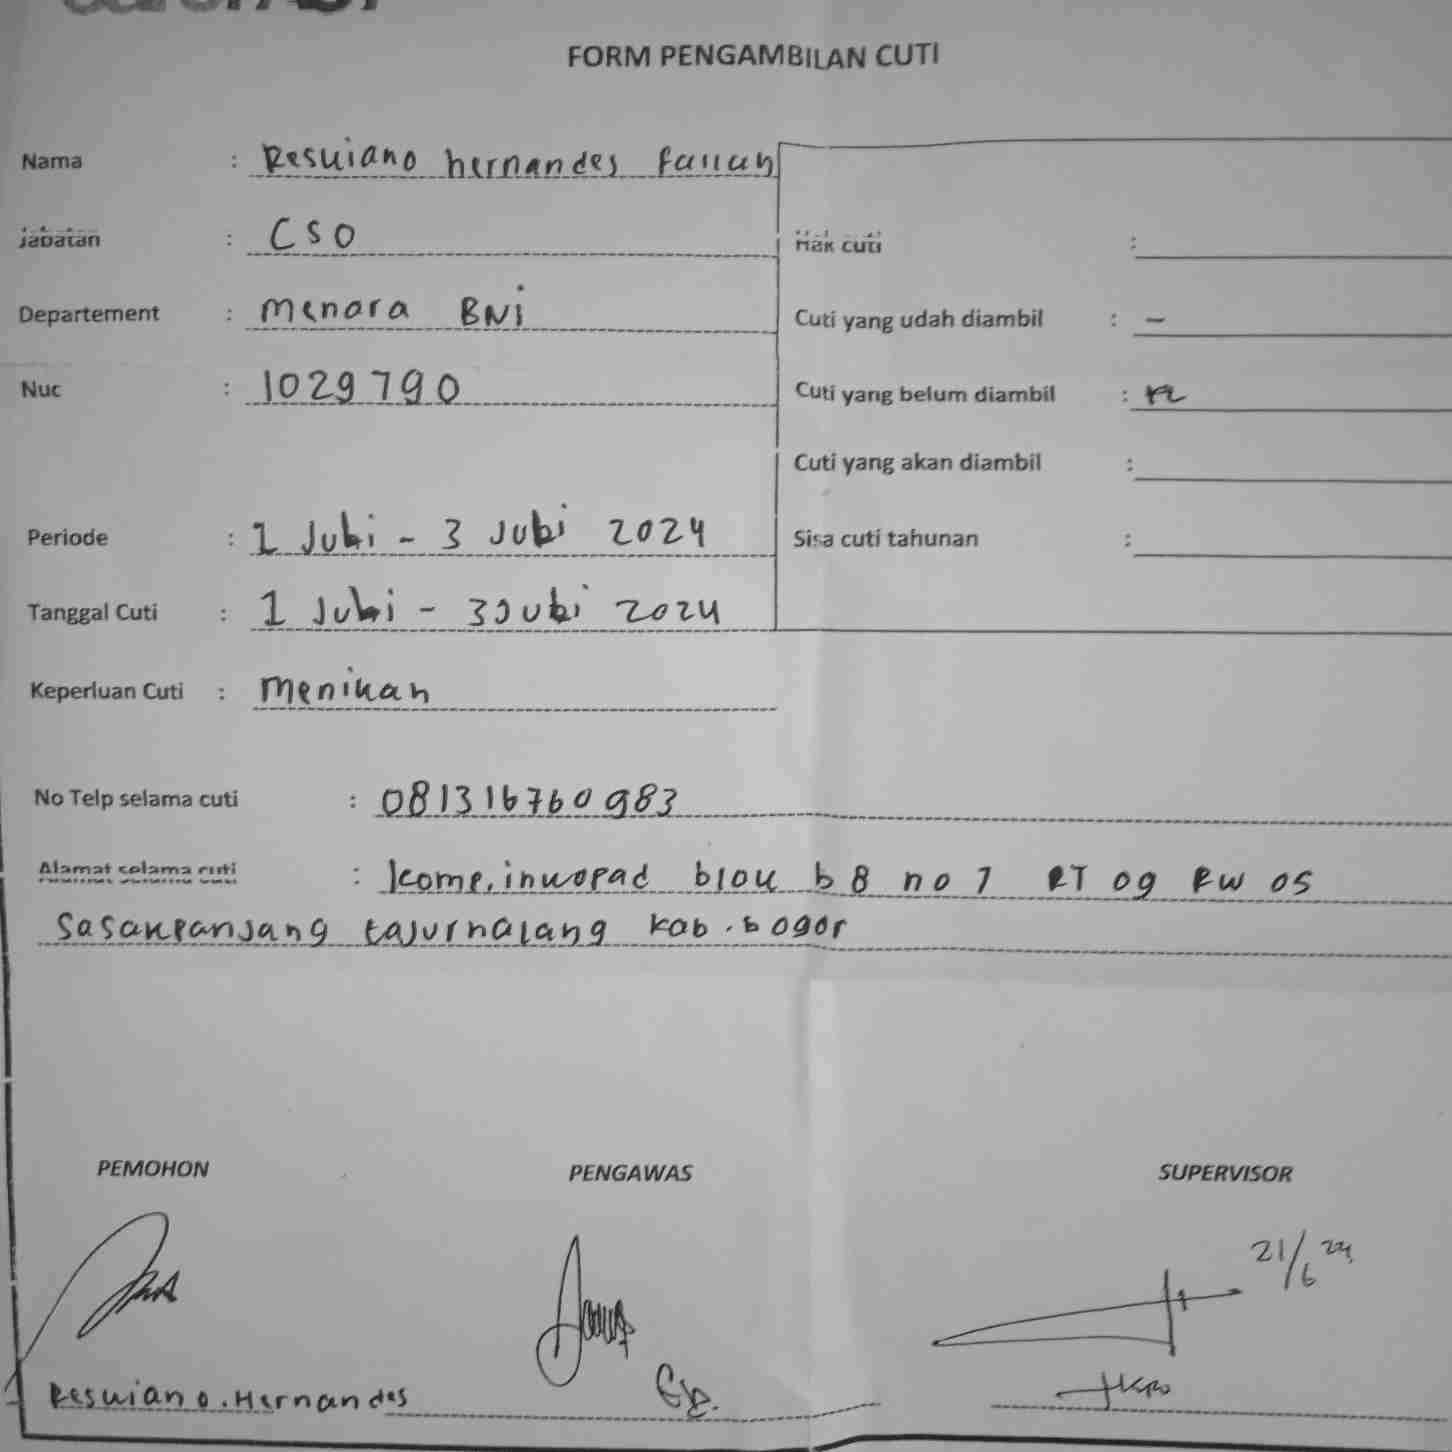 FORM PENGAMBILAN CUTI
Nama : Resuiano hernandes
Jabatan : CSO
Hak cuti :
Departement : menara BNi
Cuti yang udah diambil : -
Nuc : 1029790
Cuti yang belum diambil :
Cuti yang akan diambil :
Periode : 1 Juli - 3 Juli 2024
Sisa cuti tahunan :
Tanggal Cuti : 1 Juli - 3 Juli 2024
Keperluan Cuti : menikah
No Telp selama cuti : 081316760983
Alamat selama cuti : komp, inkopad blok b8 no 7 RT 09 RW 05
Sasakpanjang tajurhalang kab. bogor
PEMOHON PENGAWAS SUPERVISOR
21/6 24
Resuiano. Hernandes